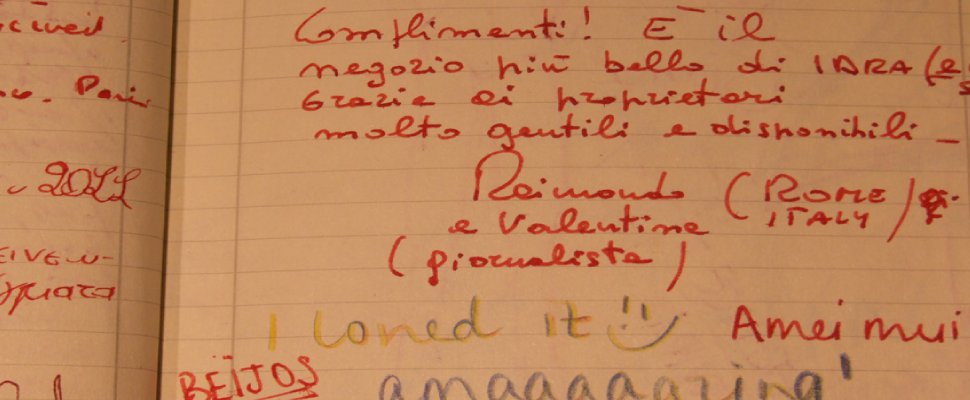 Complimenti! E' il
negozio più bello di IDRA (e
Grazie ai proprietari
molto gentili e disponibili _
Raimondo (ROME
e Valentina ITALY)
(giornalista)
I loved it
Amei mui
BEIJOS
amaaaaazing!
2011